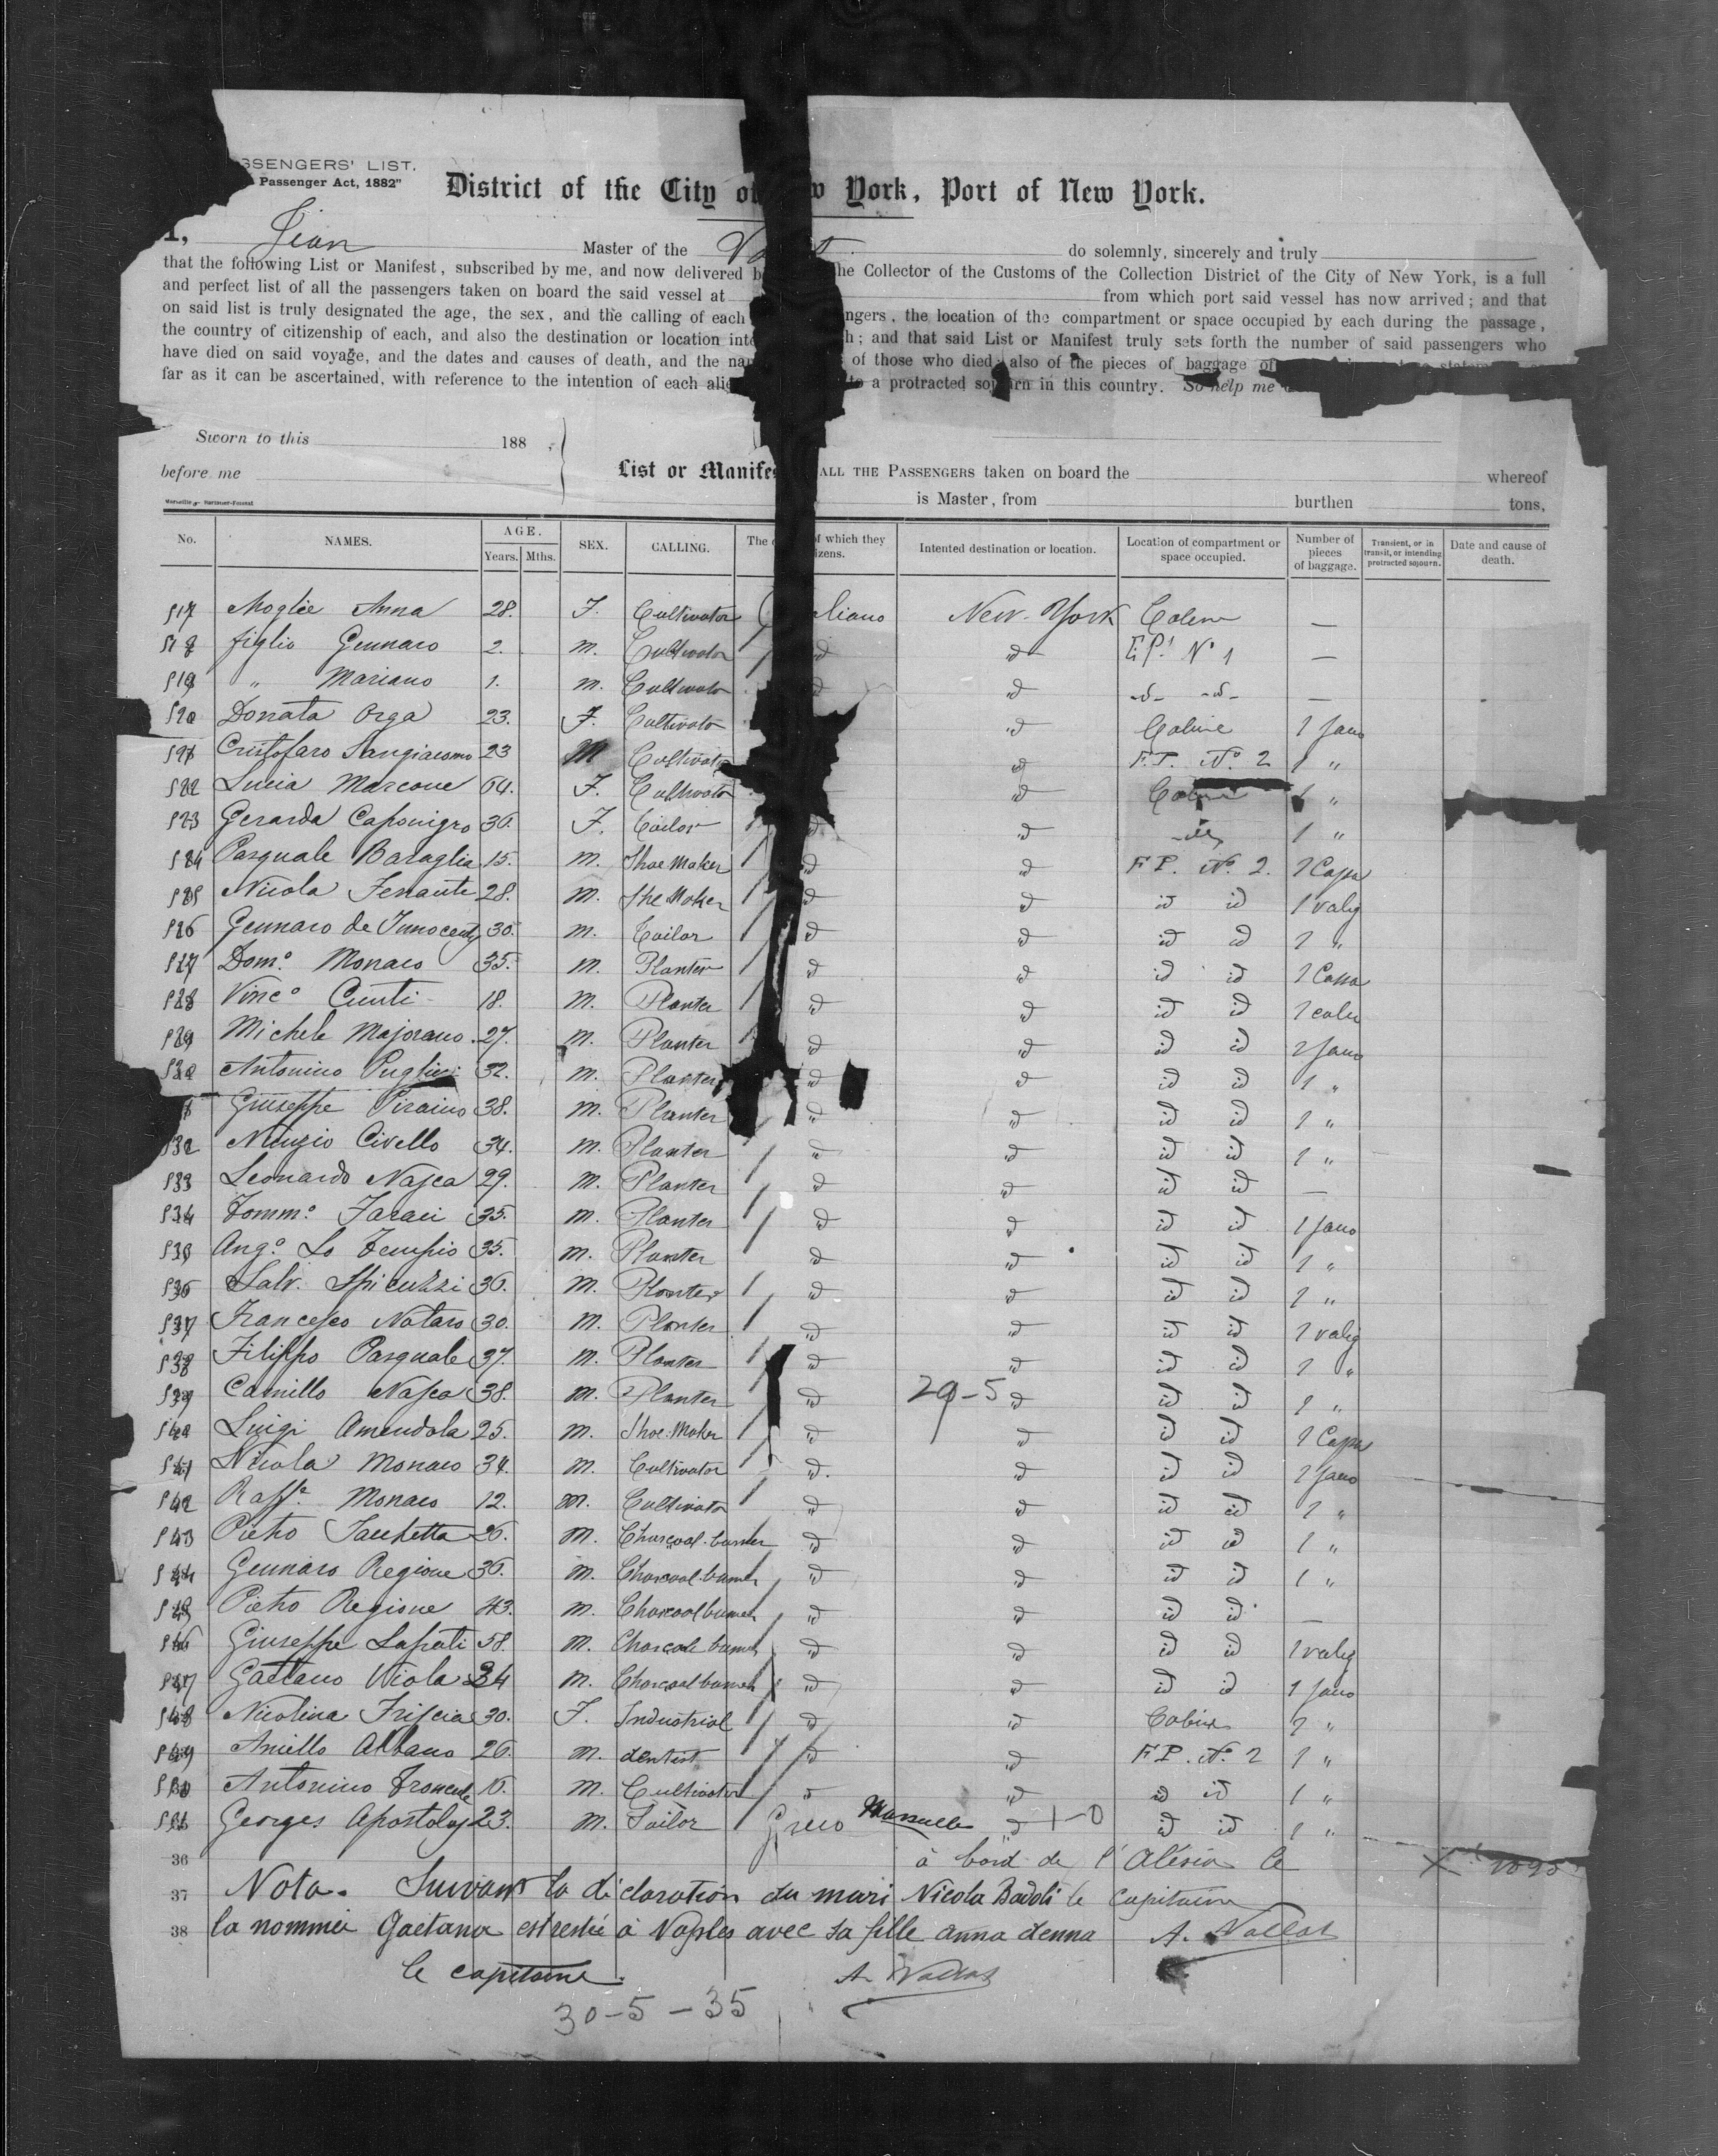 SSENGERS' LIST.
Passenger Act, 1882"
District of the City of New York, Port of New York.
I, Jean Master of the do solemnly, sincerely and truly
that the following List or Manifest, subscribed by me, and now delivered b he Collector of the Customs of the Collection District of the City of New York, is a full
and perfect list of all the passengers taken on board the said vessel at from which port said vessel has now arrived; and that
on said list is truly designated the age, the sex, and the calling of each ngers, the location of the compartment or space occupied by each during the passage,
the country of citizenship of each, and also the destination or location inte h; and that said List or Manifest truly sets forth the number of said passengers who
have died on said voyage, and the dates and causes of death, and the na of those who died; also of the pieces of baggage of
far as it can be ascertained, with reference to the intention of each alie to a protracted sojourn in this country. So help me
Sworn to this 188
before me List or Manifes ALL THE PASSENGERS taken on board the whereof
is Master, from burthen tons,
No. NAMES. AGE. Years. Mths. SEX. CALLING. The of which they izens. Intented destination or location. Location of compartment or space occupied. Number of pieces of baggage. Transient, or in transit, or intending protracted sojourn. Date and cause of death.
517 Moglie Anna 28. F. Cultivator liano New-York —
518 figlio Gennaro 2. m. Cultivator id id No 1 —
519 " Mariano 1. m. Cultivator id id -id- -id- —
520 Donata Orga 23. F. Cultivator id Cabine 1
521 Cristofaro Sangiacomo 23 M Cultivator id F.P. No. 2 1 "
522 Lucia Marcone 64. F. Cultivator id Cabine 1 "
523 Gerarda Caponigro 36. F. Tailor id id 1 "
524 Pasquale Baraglia 15. m. Shoe Maker id id F P. No. 2. 1 Cassa
525 Nicola Ferrante 28. m. Shoe Maker id id id id 1 valig
526 Gennaro de Innocenti 30. m. Tailor id id id id 1 "
527 Domo. Monaco 35. m. Planter id id id id 1 Cassa
528 Vinco Ciunti 18. m. Planter id id id id 1
529 Michele Majorano 27. m. Planter id id id id 2
530 Antonino Puglisi 32. m. Planter id id id id 1 "
Giuseppe Piraino 38. m. Planter id id id id 1 "
532 Nunzio Civello 34. m. Planter id id id id 1 "
533 Leonardo Nasca 29. m. Planter id id id id —
534 Tommo. Faraci 35. m. Planter id id id id 1
535 Ango. Lo Tempio 35. m. Planter id id id id 1 "
536 Salv. Spicuzzi 36. m. Planter id id id id 1 "
537 Francesco Notaro 30. m. Planter id id id id 1 valig
538 Filippo Pasquale 37. m. Planter id id id id 1 "
539 Camillo Nasca 38. m. Planter id 29-5 id id id 1 "
540 Luigi Amendola 25. m. Shoe-Maker id id id id 1 Cassa
541 Nicola Monaco 34. m. Cultivator id. id id id 2
542 Raffe. Monaco 12. m. Cultivator id id id id 1 "
543 Pietro Sacchetta 26. m. Charcoal-burner id id id id 1 "
544 Gennaro Regione 36. m. Charcoal-burner id id id id 1 "
545 Pietro Regione 43. m. Charcoal burner id id id id —
546 Giuseppe Lapati 58. m. Charcoal burner id id id id 1 valig
547 Gaetano Viola 34 m. Charcoal burner id id id id 1
548 Nicolina Friscia 30. F. Industrial id id Cabine 2 "
549 Aniello Albano 26. m. dentist id id F P. No. 2 1 "
550 Antonino 16. m. Cultivator id id id id 1 "
551 Georges Apostoloy 23. m. Sailor Greco id id id 1 "
36 à bord de l'Alésia le
37 Nota. Suivant la déclaration du mari Nicola Badoli le capitaine
38 la nommée Gaetana est restée à Naples avec sa fille anna denna A. Vallat
le capitaine. A. Vallat
30-5-35